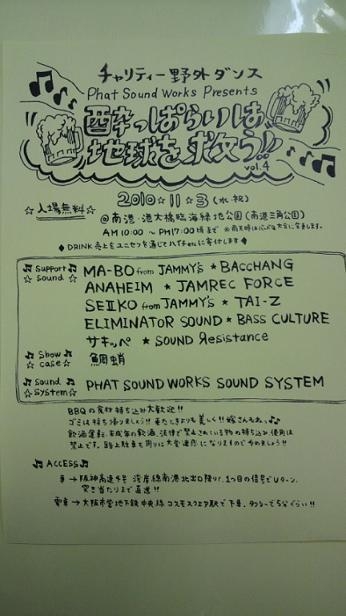 チャリティー野外ダンス
Phat Sound Works Presents
酔っぱらいは、
地球を、救う!!
vol.4
☆入場無料☆
2010☆11☆3(水・祝)
@南港・港大橋臨海緑地公園(南港三角公園)
AM10:00~PM17:00頃まで
◆DRINK売上をユニセフを通じてハイチetc.に寄付します◆
♫Support♫
☆Sound☆
MA-BO from JAMMY's ★ BACCHANG
ANAHEIM ★ JAMREC FORCE
SEIIKO from JAMMY'S ★ TAI-Z
ELIMINATOR SOUND ★ BASS CULTURE
サキッペ ★ SOUND Яesistance
♫Show♫
☆case☆
♫Sound♫
☆System☆
PHAT SOUND WORKS SOUND SYSTEM
BBQの食材持ち込み大歓迎!!
ゴミは持ち帰りましょう!! 来たときよりも美しく!!
飲酒運転、未成年の飲酒、法律で禁止されている物の持ち込み・使用は
禁止です。路上駐車も周りに大変迷惑になりますのでやめましょう!!
♫ACCESS♫
車→阪神高速4号湾岸線南港北出口降り、1つ目の信号でUターン。
突き当たりまで直進!!
電車→大阪市営地下鉄中央線コスモスクエア駅で下車、タクシーで5分ぐらい!!